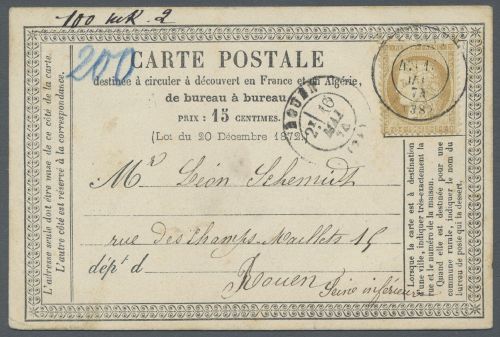 100 mk. 2
200
CARTE POSTALE
destinée à circuler à découvert en France et en Algérie,
de bureau à bureau
PRIX : 15 CENTIMES.
(Loi du 20 Décembre 1872.)
ROUEN
10
MAI
74
74
(38)
Mr Léon Schemidt
rue des Champs-Maillets 15
dépt d
Rouen
Seine inférieure
L'adresse seule doit être mise de ce côté de la carte.
L'autre côté est réservé à la correspondance.
Lorsque la carte est à destination
d'une ville, indiquer très-exactement la
rue et le numéro de la maison.
Quand elle est destinée pour une
commune rurale, indiquer le nom du
bureau de poste qui la dessert.